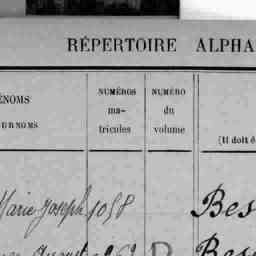 RÉPERTOIRE ALPHA
ÉNOMS
SURNOMS
NUMÉROS
ma-
tricules
NUMÉRO
du
volume
(Il doit ê
Marie Joseph 1058 Bes